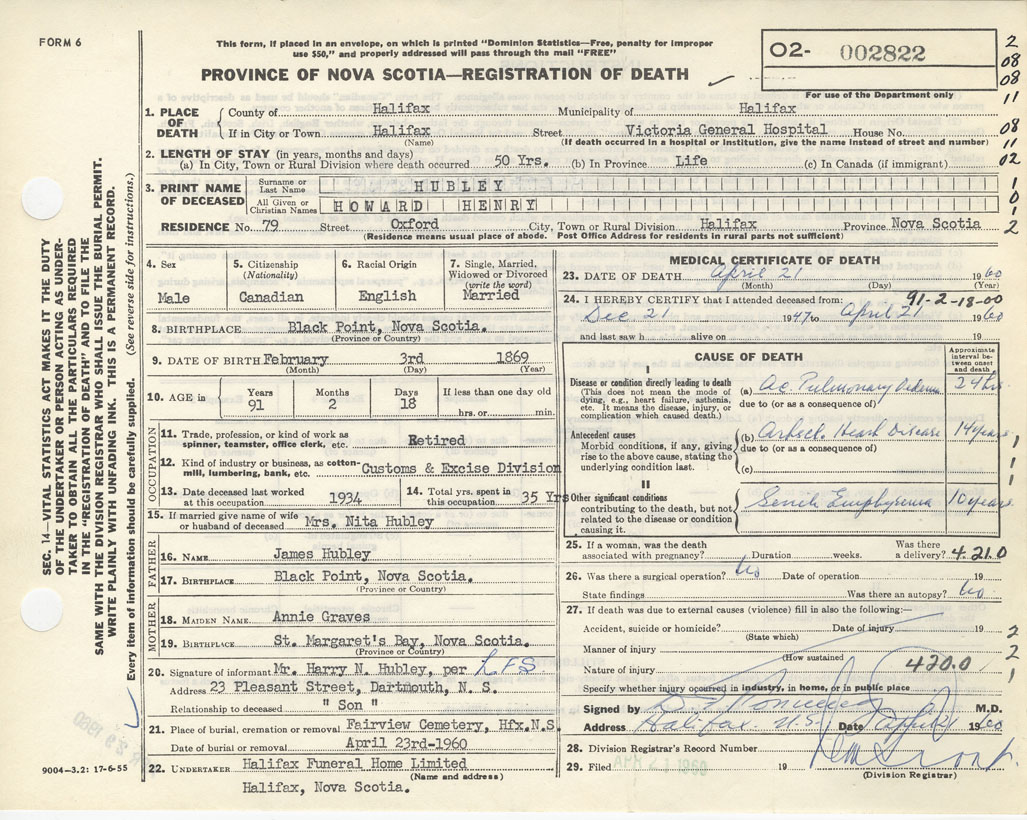 FORM 6
This form, if placed in an envelope, on which is printed "Dominion Statistics—Free, penalty for improper
use $50," and properly addressed will pass through the mail "FREE"
02- 002822
PROVINCE OF NOVA SCOTIA—REGISTRATION OF DEATH
For use of the Department only
2
08
08
11
08
11
02
1
0
1
2
1. PLACE OF DEATH
County of Halifax Municipality of Halifax
If in City or Town Halifax Street Victoria General Hospital House No.
(Name) (If death occurred in a hospital or institution, give the name instead of street and number)
2. LENGTH OF STAY (in years, months and days)
(a) In City, Town or Rural Division where death occurred 50 Yrs. (b) In Province Life (c) In Canada (if immigrant)
3. PRINT NAME OF DECEASED
Surname or Last Name HUBLEY
All Given or Christian Names HOWARD HENRY
RESIDENCE No. 79 Street Oxford City, Town or Rural Division Halifax Province Nova Scotia
(Residence means usual place of abode. Post Office Address for residents in rural parts not sufficient)
4. Sex
Male
5. Citizenship
(Nationality)
Canadian
6. Racial Origin
English
7. Single, Married,
Widowed or Divorced
(write the word)
Married
8. BIRTHPLACE Black Point, Nova Scotia.
(Province or Country)
9. DATE OF BIRTH February 3rd 1869
(Month) (Day) (Year)
10. AGE in
Years Months Days If less than one day old
91 2 18 hrs. or min.
OCCUPATION
11. Trade, profession, or kind of work as
spinner, teamster, office clerk, etc. Retired
12. Kind of industry or business, as cotton-
mill, lumbering, bank, etc. Customs & Excise Division
13. Date deceased last worked
at this occupation 1934
14. Total yrs. spent in
this occupation 35 Yrs
15. If married give name of wife
or husband of deceased Mrs. Nita Hubley
FATHER
16. NAME James Hubley
17. BIRTHPLACE Black Point, Nova Scotia.
(Province or Country)
MOTHER
18. MAIDEN NAME Annie Graves
19. BIRTHPLACE St. Margaret's Bay, Nova Scotia.
(Province or Country)
20. Signature of informant Mr. Harry N. Hubley, per LFS
Address 23 Pleasant Street, Dartmouth, N. S.
Relationship to deceased " Son "
21. Place of burial, cremation or removal Fairview Cemetery, Hfx.N.S.
Date of burial or removal April 23rd-1960
22. UNDERTAKER Halifax Funeral Home Limited
(Name and address)
Halifax, Nova Scotia.
MEDICAL CERTIFICATE OF DEATH
23. DATE OF DEATH April 21 1960
(Month) (Day) (Year)
24. I HEREBY CERTIFY that I attended deceased from: 91-2-18-00
Dec 21 1947 to April 21 1960
and last saw h alive on 19
CAUSE OF DEATH
Approximate
interval be-
tween onset
and death
I
Disease or condition directly leading to death
(This does not mean the mode of
dying, e.g., heart failure, asthenia,
etc. It means the disease, injury, or
complication which caused death.)
(a) Ac. Pulmonary Oedema 24 hrs.
due to (or as a consequence of)
Antecedent causes
Morbid conditions, if any, giving
rise to the above cause, stating the
underlying condition last.
(b) Heart Disease 14 years
due to (or as a consequence of)
(c)
II
Other significant conditions
contributing to the death, but not
related to the disease or condition
causing it.
Senile Emphysema 10 years
1
1
1
1
25. If a woman, was the death Was there
associated with pregnancy? Duration weeks. a delivery? 4.21.0
26. Was there a surgical operation? No Date of operation 19
State findings Was there an autopsy? No
27. If death was due to external causes (violence) fill in also the following:—
Accident, suicide or homicide? Date of injury 19
(State which)
Manner of injury
(How sustained
Nature of injury 420.0
Specify whether injury occurred in industry, in home, or in public place
2
2
1
Signed by M.D.
Address Halifax N.S. Date April 21 1960
28. Division Registrar's Record Number
29. Filed APR 21 1960 19
(Division Registrar)
SEC. 14—VITAL STATISTICS ACT MAKES IT THE DUTY
OF THE UNDERTAKER OR PERSON ACTING AS UNDER-
TAKER TO OBTAIN ALL THE PARTICULARS REQUIRED
IN THE "REGISTRATION OF DEATH" AND TO FILE THE
SAME WITH THE DIVISION REGISTRAR WHO SHALL ISSUE THE BURIAL PERMIT.
WRITE PLAINLY WITH UNFADING INK. THIS IS A PERMANENT RECORD.
Every item of information should be carefully supplied. (See reverse side for instructions.)
9004—3.2: 17-6-55